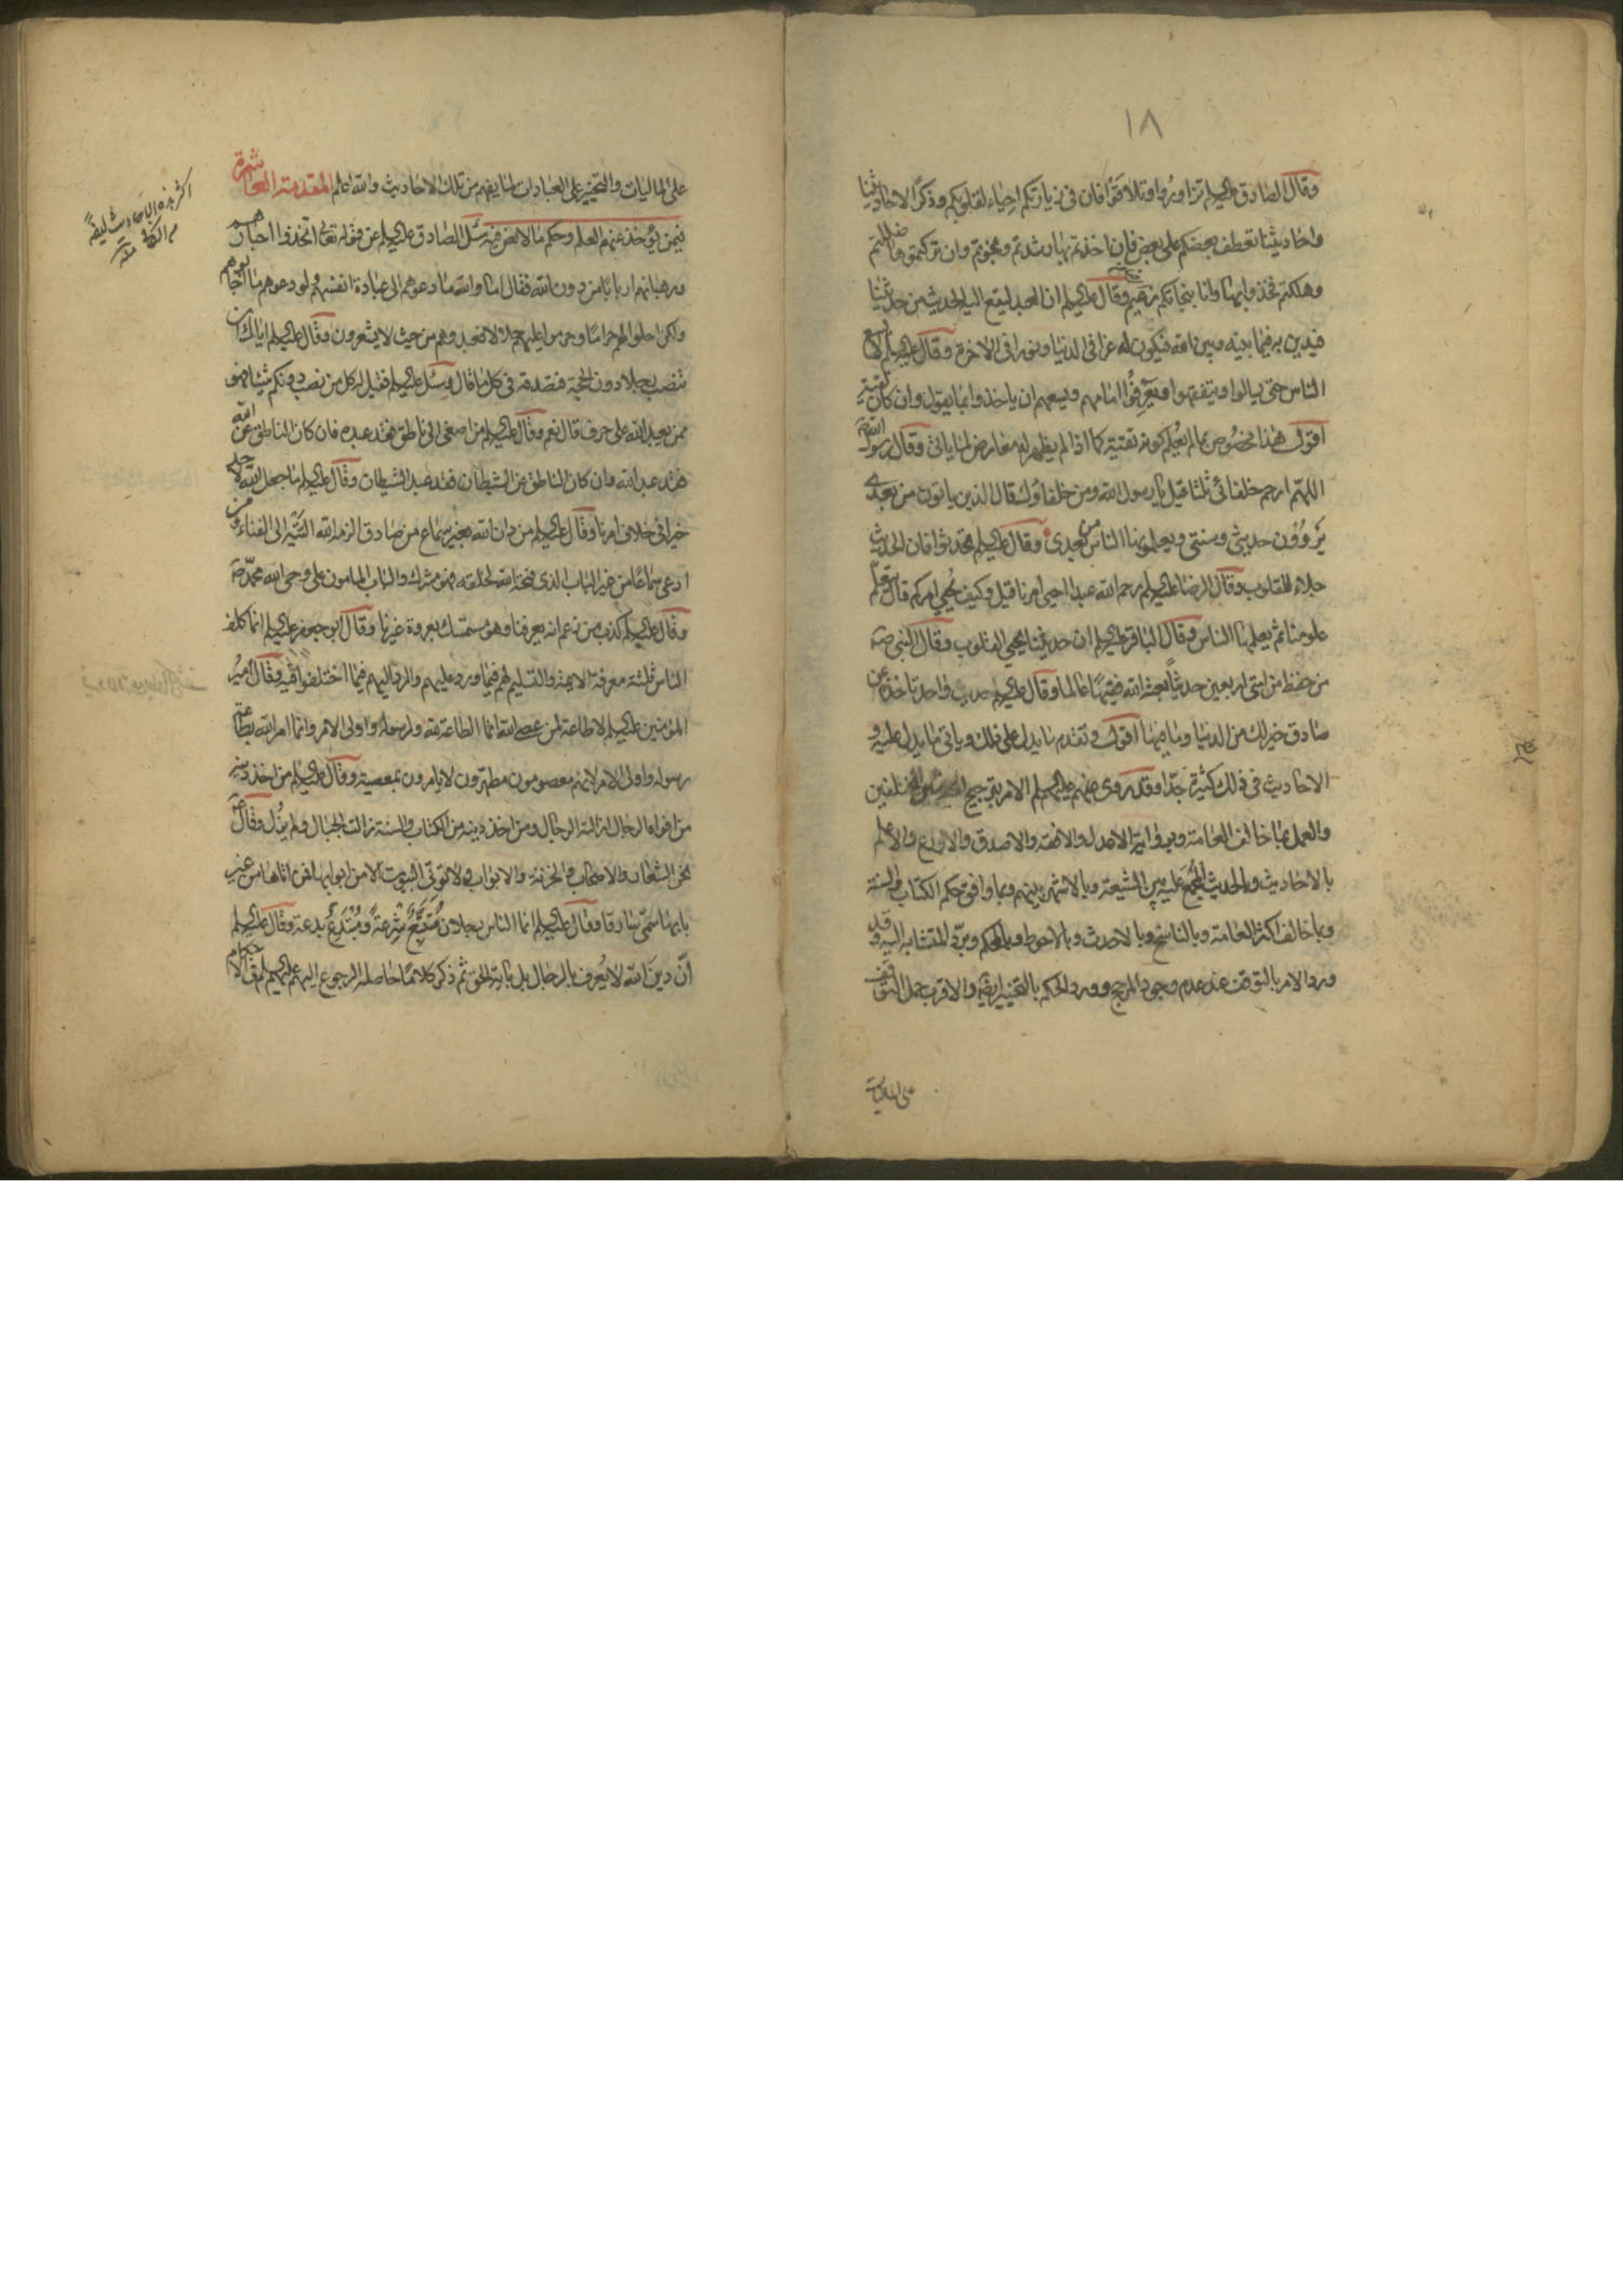 ١٨
وقال الصادق عليه السلم تزاوروا وتلاقوا فان في زيارتكم احياء لقلوبكم وذكرا لاحاديثنا
واحاديثنا تعطف بعضكم على بعض فان اخذتم بها رشدتم ونجوتم وان تركتموها ضللتم
وهلكتم فخذوا بها وانا بنجاتكم زعيم وقال عليه السلم ان العبد ليقع اليه الحديث من حديثنا
فيدين به فيما بينه وبين الله فيكون له عزا في الدنيا ونورا في الاخرة وقال عليه السلم لا يسع
الناس حتى يسالوا ويتفقهوا ويعرفوا امامهم ويسعهم ان ياخذوا بما يقول وان كان تقية
اقول هذا مخصوص بما لم يعلم كونه تقية كما اذا لم يظهر له معارض لما ياتى وقال رسول الله ص
اللهم ارحم خلفائى ثلثا قيل يا رسول الله ومن خلفاؤك قال الذين ياتون من بعدى
يروون حديثى وسنتى ويعلمونها الناس من بعدى وقال عليه السلم تحدثوا فان الحديث
جلاء للقلوب وقال الرضا عليه السلم رحم الله عبدا احيى امرنا قيل وكيف يحيي امركم قال يتعلم
علومنا ثم يعلمها الناس وقال الباقر عليه السلم ان حديثنا يحيي القلوب وقال النبي ص
من حفظ من امتى اربعين حديثا بعثه الله فقيها عالما وقال عليه السلم حديث واحد تاخذه عن
صادق خير لك من الدنيا وما فيها اقول وتقدم ما يدل على ذلك وياتى ما يدل عليه و
الاحاديث في ذلك كثيرة جدا وقد روى عنهم عليهم السلم الامر بترجيح المختلفين
والعمل بما خالف العامة وبرواية الاعدل والافقه والاصدق والاورع والاعلم
بالاحاديث وبالحديث المجمع عليه بين الشيعة وبالاشهر بينهم وبما وافق حكم الكتاب والسنة
وبما خالف اكثر العامة وبالناسخ وبالاحدث وبالاحوط وبالمحكم وبرد المتشابه اليه وقد
ورد الامر بالتوقف عند عدم وجود المرجح وورد الحكم بالتخيير ايضا والاقرب حمل التوقف
على الماليات
على الماليات والتخيير على العبادات لما يفهم من تلك الاحاديث والله اعلم المقدمة العاشرة
فيمن يؤخذ عنهم العلم وحكم ما لا نص فيه سئل الصادق عليه السلم عن قوله تعالى اتخذوا احبارهم
ورهبانهم اربابا من دون الله فقال اما والله ما دعوهم الى عبادة انفسهم ولو دعوهم ما اجابوهم
ولكن احلوا لهم حراما وحرموا عليهم حلالا فعبدوهم من حيث لا يشعرون وقال عليه السلم اياك ان
تنصب رجلا دون الحجة فتصدقه في كل ما قال وسئل عليه السلم فقيل له كل من نصب دونكم شيئا فهو
ممن يعبد الله على حرف قال نعم وقال عليه السلم من اصغى الى ناطق فقد عبده فان كان الناطق عن الله
فقد عبد الله وان كان الناطق عن الشيطان فقد عبد الشيطان وقال عليه السلم ما جعل الله لاحد
خيرا في خلاف امرنا وقال عليه السلم من دان الله بغير سماع من صادق الزمه الله التيه الى الفناء ومن
ادعى سماعا من غير الباب الذى فتحه الله لخلقه فهو مشرك والباب المامون على وحى الله محمد ص
وقال عليه السلم كذب من زعم انه يعرفنا وهو مستمسك بعروة غيرنا وقال ابو جعفر عليه السلم انما كلف
الناس ثلثة معرفة الائمة والتسليم لهم فيما ورد عليهم والرد اليهم فيما اختلفوا فيه وقال امير
المؤمنين عليه السلم لا طاعة لمن عصى الله انما الطاعة لله ولرسوله واولى الامر وانما امر الله بطاعة
رسوله واولى الامر لانهم معصومون مطهرون لا يامرون بمعصية وقال عليه السلم من اخذ دينه
من افواه الرجال ازالته الرجال ومن اخذ دينه من الكتاب والسنة زالت الجبال ولم يزل وقال ع
نحن الشعار والاصحاب والخزنة والابواب ولا تؤتى البيوت الا من ابوابها فمن اتاها من غير
بابها سمى سارقا وقال عليه السلم انما الناس رجلان متبع شرعة ومبتدع بدعة وقال عليه السلم
ان دين الله لا يعرف بالرجال بل باية الحق ثم ذكر كلاما حاصله الرجوع اليهم عليهم السلم في الاحكام